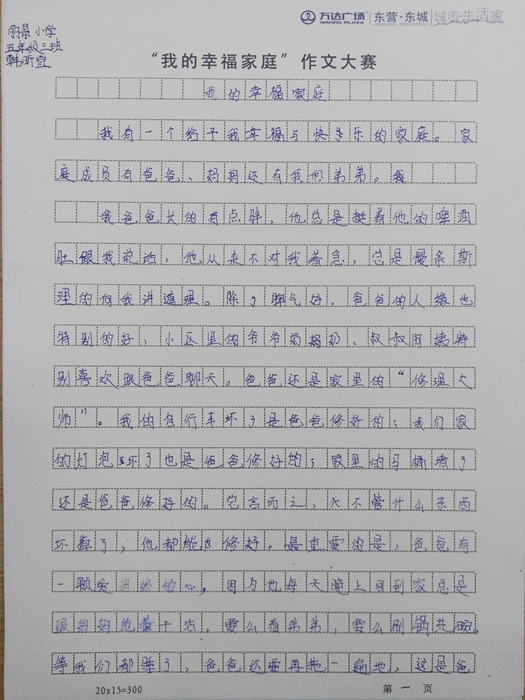 万达广场 WANDA PLAZA 东营·东城 城市·生活家
小学
五年级三班
韩昕宜
“我的幸福家庭”作文大赛
我的幸福家庭
我有一个给予我幸福与快乐的家庭。家
庭成员有爸爸、妈妈还有我和弟弟。
我爸爸长的有点胖,他总是挺着他的啤酒
肚跟我说话,他从来不对我着急,总是慢条斯
理的向我讲道理。除了脾气好,爸爸的人缘也
特别的好,小区里的爷爷奶奶、叔叔阿姨特
别喜欢跟爸爸聊天。爸爸还是家里的“修理大
师”。我的自行车坏了是爸爸修好的;我们家
的灯泡坏了也是爸爸修好的;家里的马桶堵了
还是爸爸修好的。总而言之,不管什么东西
坏了,他都能修好。最重要的是,爸爸有
一颗爱妈妈的心,因为他每天晚上回到家总是
跟妈妈抢着干活,要么看弟弟,要么刷锅洗碗。
等我们都睡了,爸爸还要再拖一遍地,这是爸
20x15=300
第一页